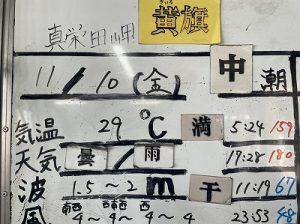 真栄田岬
黄旗
11/10(金)
中潮
気温 29℃ 満 5:24 159
天気 曇/雨 17:28 180
波 1.5~2m 干 11:19 67
風 4~4~4~4 23:53